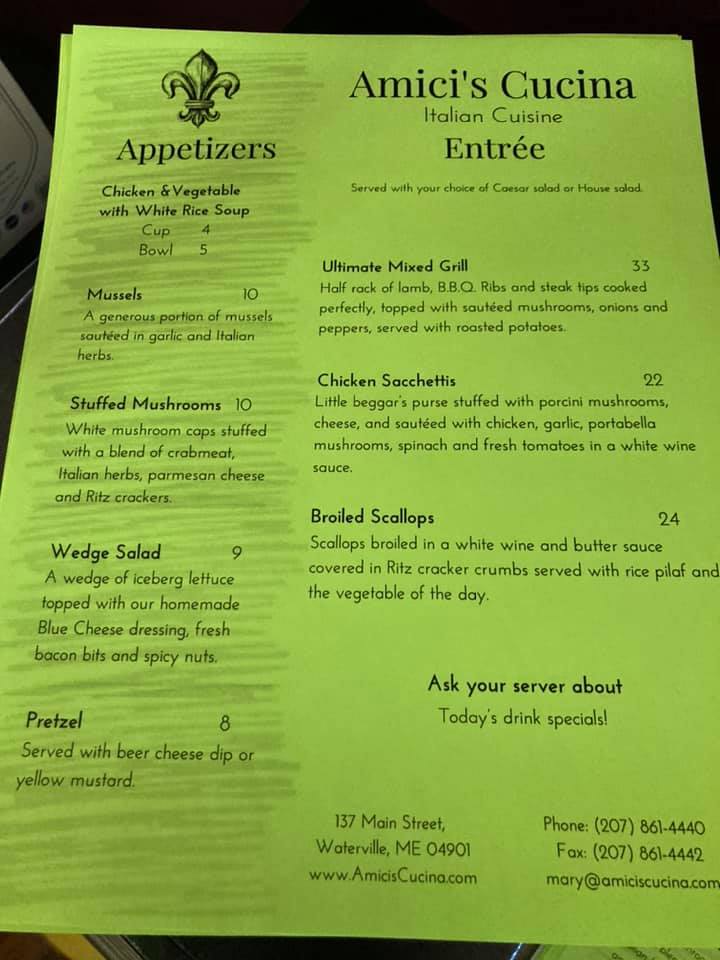 Appetizers
Chicken & Vegetable
with White Rice Soup
Cup 4
Bowl 5
Mussels 10
A generous portion of mussels
sautéed in garlic and Italian
herbs.
Stuffed Mushrooms 10
White mushroom caps stuffed
with a blend of crabmeat,
Italian herbs, parmesan cheese
and Ritz crackers.
Wedge Salad 9
A wedge of iceberg lettuce
topped with our homemade
Blue Cheese dressing, fresh
bacon bits and spicy nuts.
Pretzel 8
Served with beer cheese dip or
yellow mustard.
Amici's Cucina
Italian Cuisine
Entrée
Served with your choice of Caesar salad or House salad.
Ultimate Mixed Grill 33
Half rack of lamb, B.B.Q. Ribs and steak tips cooked
perfectly, topped with sautéed mushrooms, onions and
peppers, served with roasted potatoes.
Chicken Sacchettis 22
Little beggar's purse stuffed with porcini mushrooms,
cheese, and sautéed with chicken, garlic, portabella
mushrooms, spinach and fresh tomatoes in a white wine
sauce.
Broiled Scallops 24
Scallops broiled in a white wine and butter sauce
covered in Ritz cracker crumbs served with rice pilaf and
the vegetable of the day.
Ask your server about
Today's drink specials!
137 Main Street,
Waterville, ME 04901
www.AmicisCucina.com
Phone: (207) 861-4440
Fax: (207) 861-4442
mary@amiciscucina.com